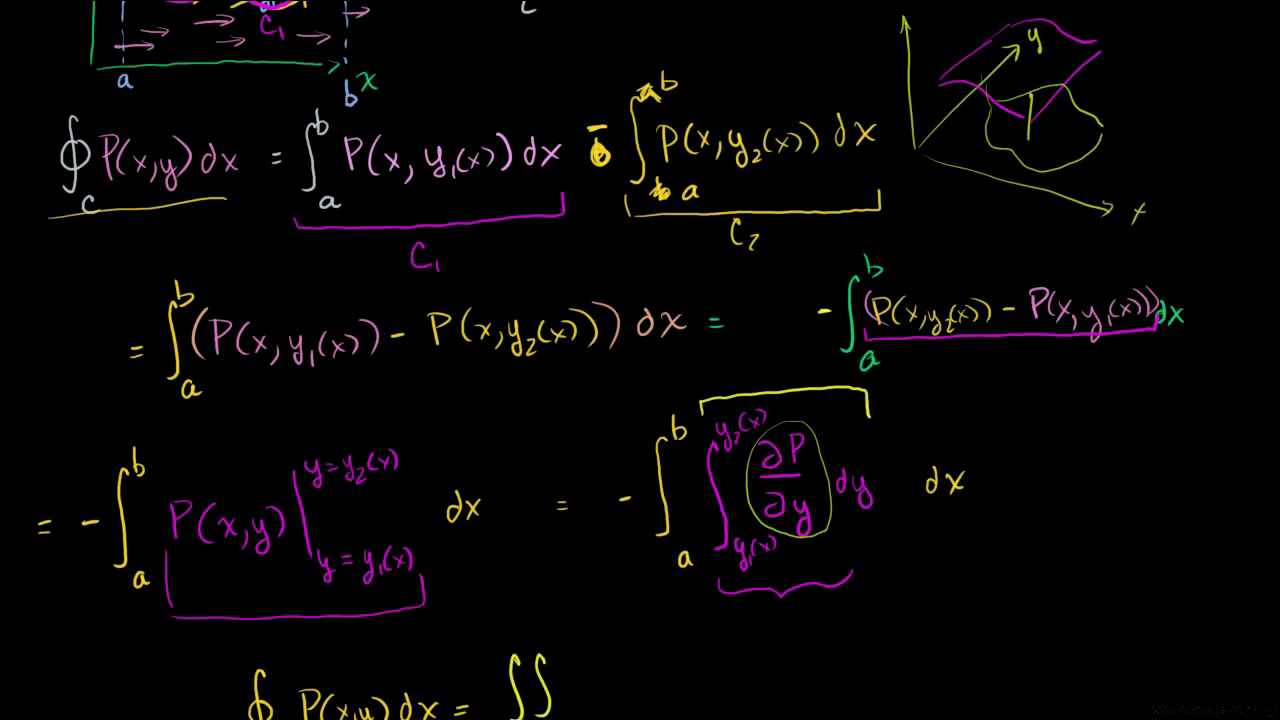 C₁
c
a b x
y
x
∮_C P(x,y) dx = ∫_a^b P(x, y₁(x)) dx - ∫_a^b P(x, y₂(x)) dx
C₁ C₂
= ∫_a^b (P(x, y₁(x)) - P(x, y₂(x))) dx = - ∫_a^b (P(x, y₂(x)) - P(x, y₁(x))) dx
= - ∫_a^b P(x,y) |_{y = y₁(x)}^{y = y₂(x)} dx = - ∫_a^b ∫_{y₁(x)}^{y₂(x)} ∂P/∂y dy dx
∮ P(x,y) dx = ∬